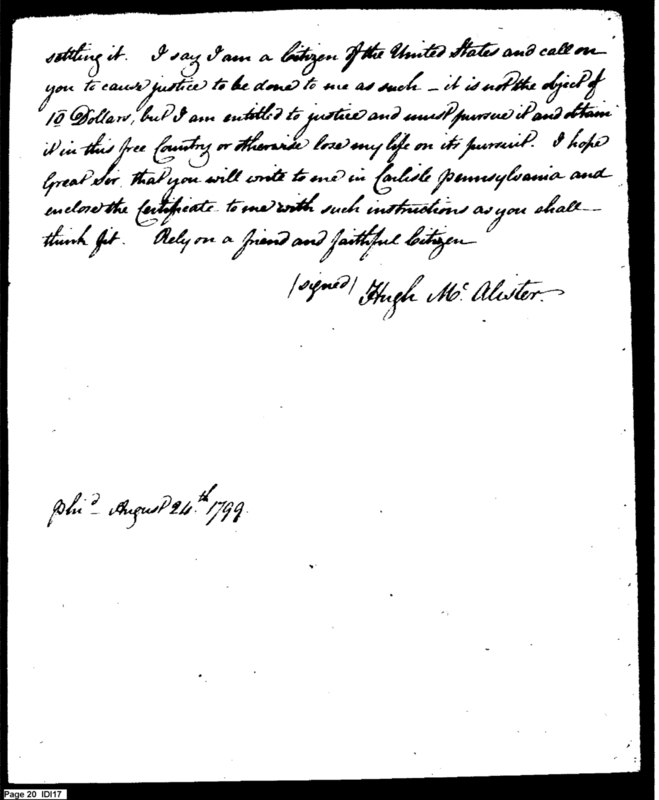 settling it. I say I am a Citizen of the United States and call on
you to cause justice to be done to me as such – it is not the object of
10 Dollars, but I am entitled to justice and must pursue it and obtain
it in this free Country or otherwise lose my life on its pursuit. I hope
Great Sir that you will write to me in Carlisle Pennsylvania and
enclose the Certificate to me with such instructions as you shall
think fit. Rely on a friend and faithful Citizen
/signed/ Hugh Mc. Alister.
Phid– August 24th 1799.
Page 20 IDI17